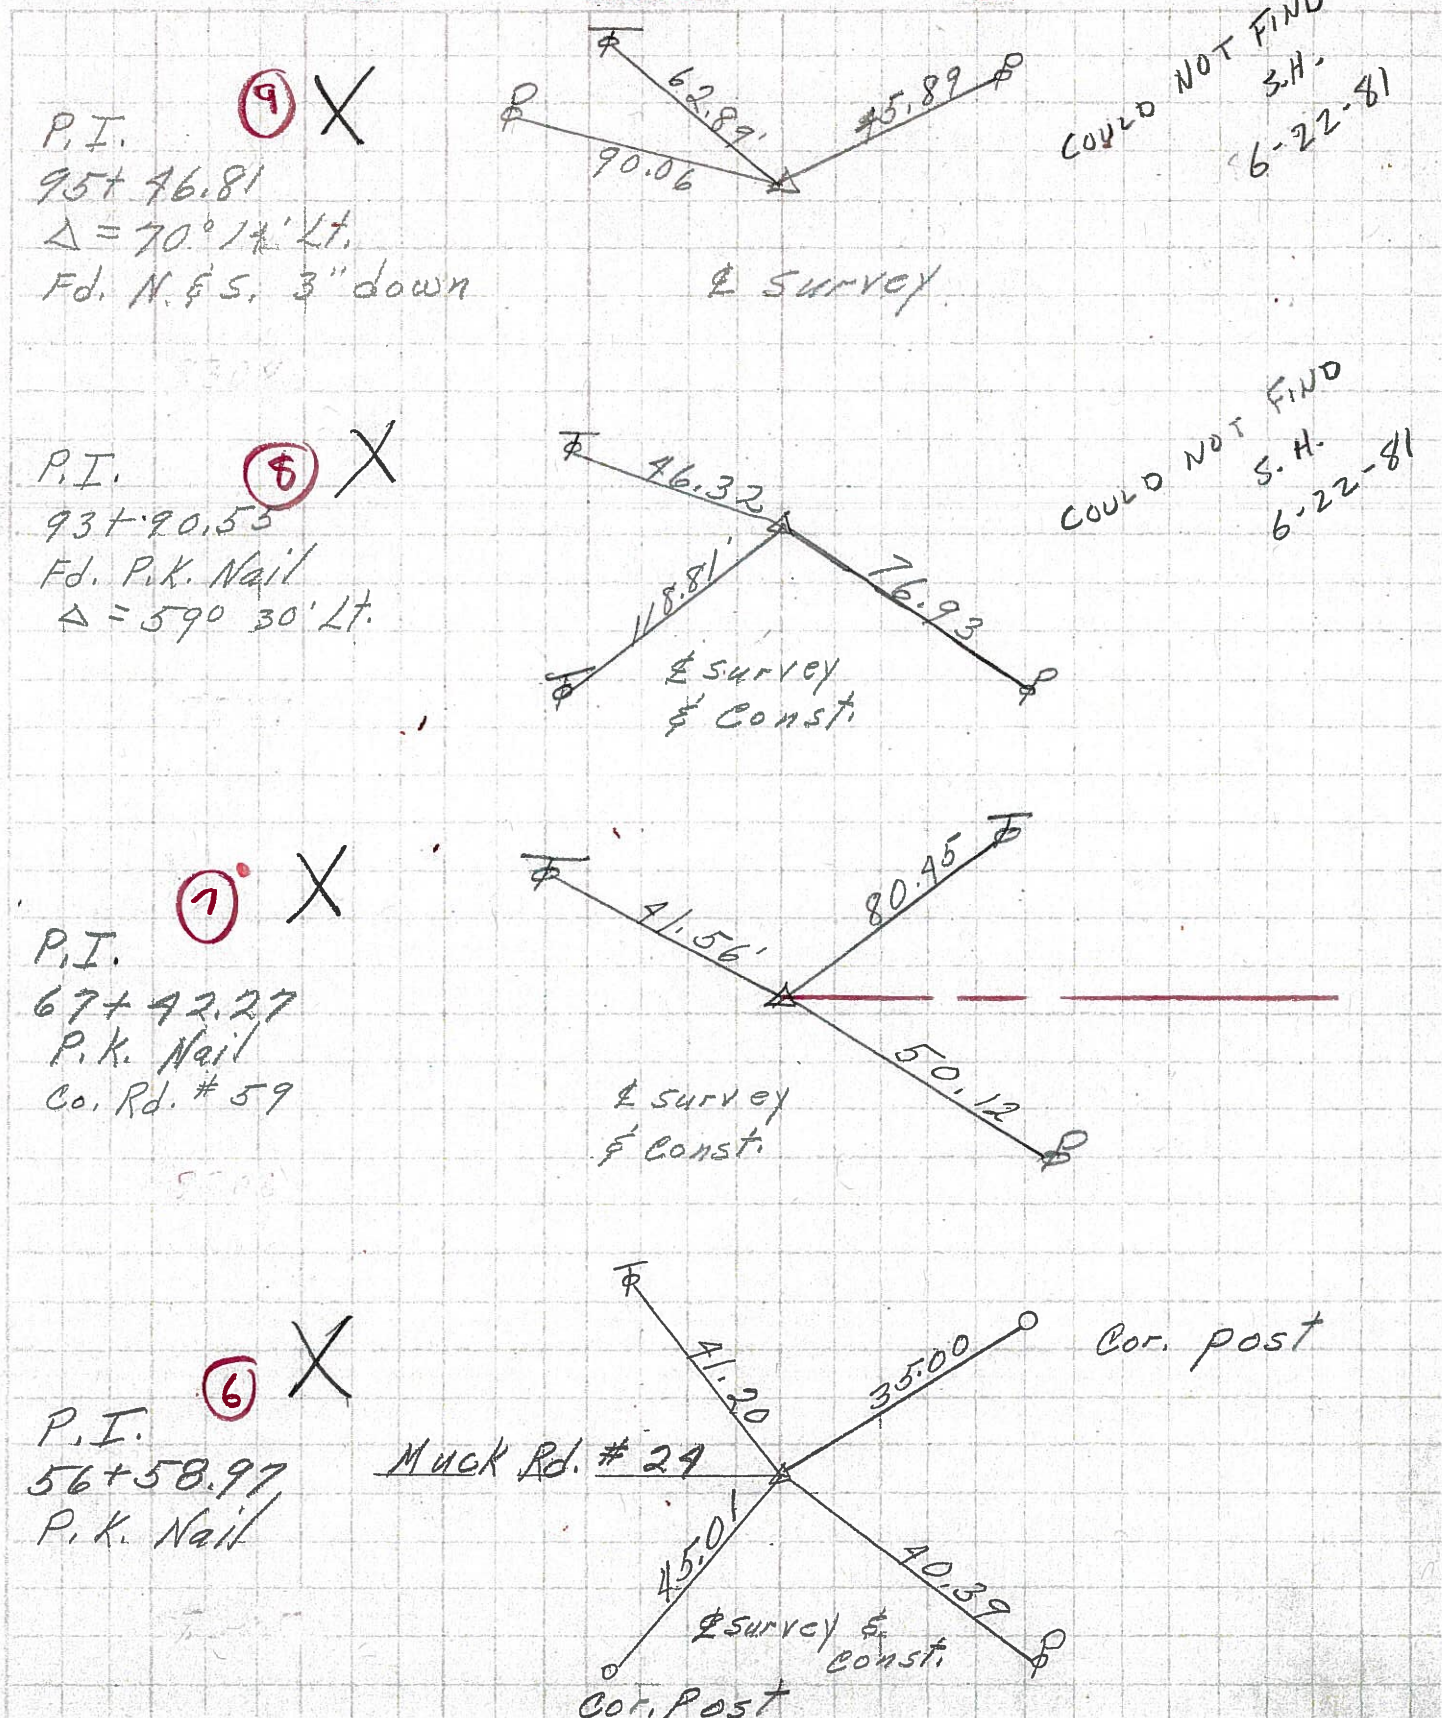 9 X
P.I.
95+46.81
Δ = 70° 14' Lt.
Fd. N. & S. 3" down
62.89'
90.06
45.89
℄ Survey
COULD NOT FIND
S.H.
6-22-81
8 X
P.I.
93+90.55
Fd. P.K. Nail
Δ = 59° 30' Lt.
46.32
118.81'
76.93
℄ survey
& Const.
COULD NOT FIND
S.H.
6-22-81
7 X
P.I.
67+42.27
P.K. Nail
Co. Rd. # 59
41.56'
80.45
50.12
℄ survey
& Const.
6 X
P.I.
56+58.97
P.K. Nail
41.20
35.00
Cor. post
Muck Rd. # 24
45.01
40.39
℄ survey &
const.
Cor. Post